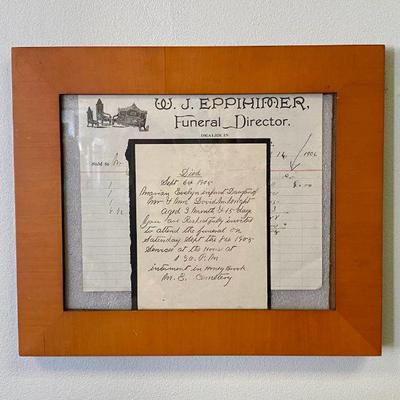 W. J. EPPIHIMER,
Funeral Director.
DEALER IN
Sold to
14 1906
Died
Sept 6th 1905
Evelyn infant Daughter of
Mr & Mrs David McWright
aged 3 Month & 15 days
You are Respectfully invited
to attend the funeral on
Saturday Sept the 1905
Services at the House at
1 30 P.M
interment in Honey Brook
M. E. Cemetery